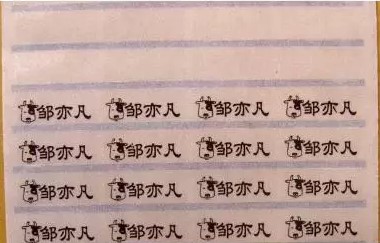 邹亦凡 邹亦凡 邹亦凡 邹亦凡
邹亦凡 邹亦凡 邹亦凡 邹亦凡
邹亦凡 邹亦凡 邹亦凡 邹亦凡
邹亦凡 邹亦凡 邹亦凡 邹亦凡